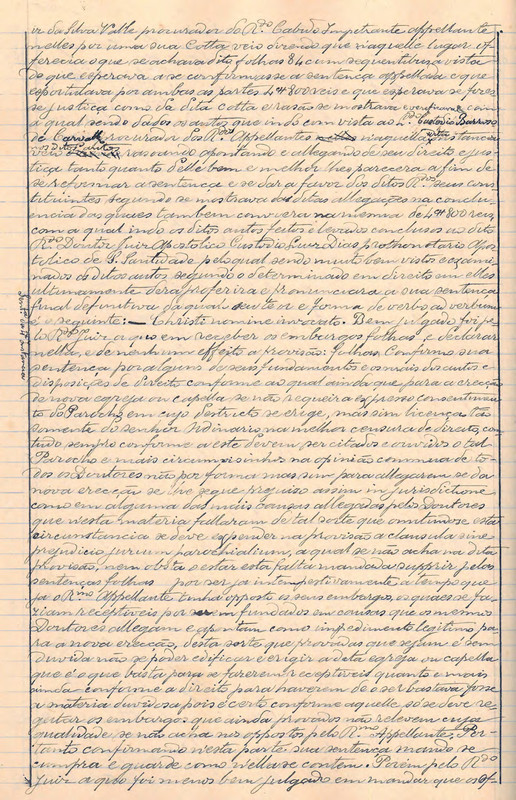 or da Silva Valle procurador do R.do Cabido Impetrante appellante
nelles por uma sua Cotta veio dizendo que n'aquelle lugar of-
ferecia o que se achava dito folhas 84 cum sequentibus a vista
do que esperava a se confirmasse a sentença appellada e que
esportulava por ambas as partes 4#800 reis e que esperava se fizes-
se justiça como da dita cotta e rasão se mostrava e continua com
a qual sendo dados os autos que indo com vista ao Custodio Barroso
de Carvalho procurador dos R.dos Appellantes n'aquella instancia
veio rasoando apontando e allegando de seu direito e jus-
tiça tanto quanto delle bem e melhor lhes parecera a fim de
se reformar a sentença e se dar a favor dos ditos R.dos seus cons-
tituintes segundo se mostrava das ditas allegações na conclu-
encia das quaes tambem conviera na mesma de 4#800 reis,
com a qual indo os ditos autos feitos e levados conclusos ao dito
R.do Doutor Juiz Apostolico Custodio Luiz Dias prothonotario Apos-
tolico de S. Santidade pelo qual sendo muito bem vistos e exami-
nados os ditos autos segundo o determinado em direito em elles
ultimamente dera proferira e pronunciara a sua sentença
final definitiva da qual seu teor e forma de verbo ad verbum
é o seguinte: — Christi nomine invocato. Bem julgado foi pe-
lo R.do Juiz a quo em receber os embargos folhas e declarar
nella, e de nenhum effeito a provisão: folhas. Confirmo sua
sentença por alguns de seus fundamentos e os mais dos autos e
disposições de direito conforme ao qual ainda que para a erecção
de nova egreja ou capella se não requeira expresso consentimen-
to do Parocho em cujo destricto se erige, mas sim licença tão
somente do senhor Ordinario na melhor censura de direito, con-
tudo, sempre conforme a este devem ser citados e ouvidos o tal
Parocho e mais circumvisinhos na opinião commua de to-
dos os Doutores não por forma mas sim para allegarem se da
nova erecção se lhe segue prejuiso assim in jurisdictione
como em alguma das mais cousas allegadas pelos Doutores
que n'esta materia fallaram de tal sorte que omittindo-se esta
circunstancia se deve expender na provisão a clausula sine
prejudicio jurium parochialium, a qual se não acha na dita
provisão, nem obsta o estar esta falta mandada supprir pelas
sentenças folhas por ser ja intempestivamente a tempo que
ja o R.mo Appellante tinha opposto os seus embargos, os quaes se fa-
ziam receptiveis por serem fundados em causas que os mesmos
Doutores allegam e apontam como impedimento legitimo pa-
ra a nova erecção, desta sorte que provadas que sejam é sem
duvida não se poder edificar e erigir a dita egreja ou capella
que é o que basta para se fazerem receptiveis quanto mais
ainda conforme a direito para haverem de o ser bastava fosse
a materia duvidosa pois é certo conforme aquelle, só se deve re-
geitar os embargos que ainda provados não relevem cuja
qualidade se não acha nos oppostos pelo R.mo Appellante: Por-
tanto confirmando n'esta parte sua sentença mando se
cumpra e guarde como n'ella se contem. Porem pelo R.do
Juiz a quo foi menos bem julgado em mandar que os of-